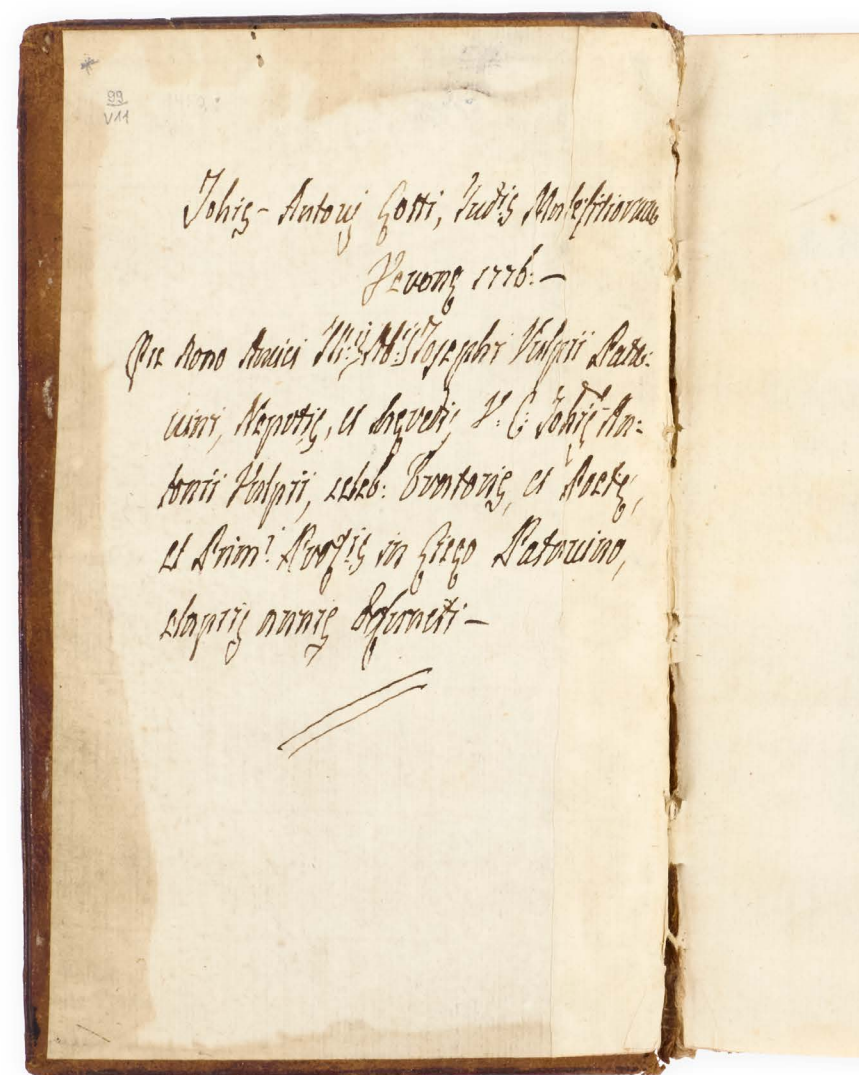 99
V11
Johis - Antonij Gotti, Judis Malefitiorum
Veronę 1776:-
Ex dono Amici Josephi Vulpii Pata:
vini, Nepotis, et hęredis V: C: Johis An=
tonii Vulpii, celeb: Oratoris, et Poetę,
et Prim: Profis in Patavino,
elapsis annis defuncti -